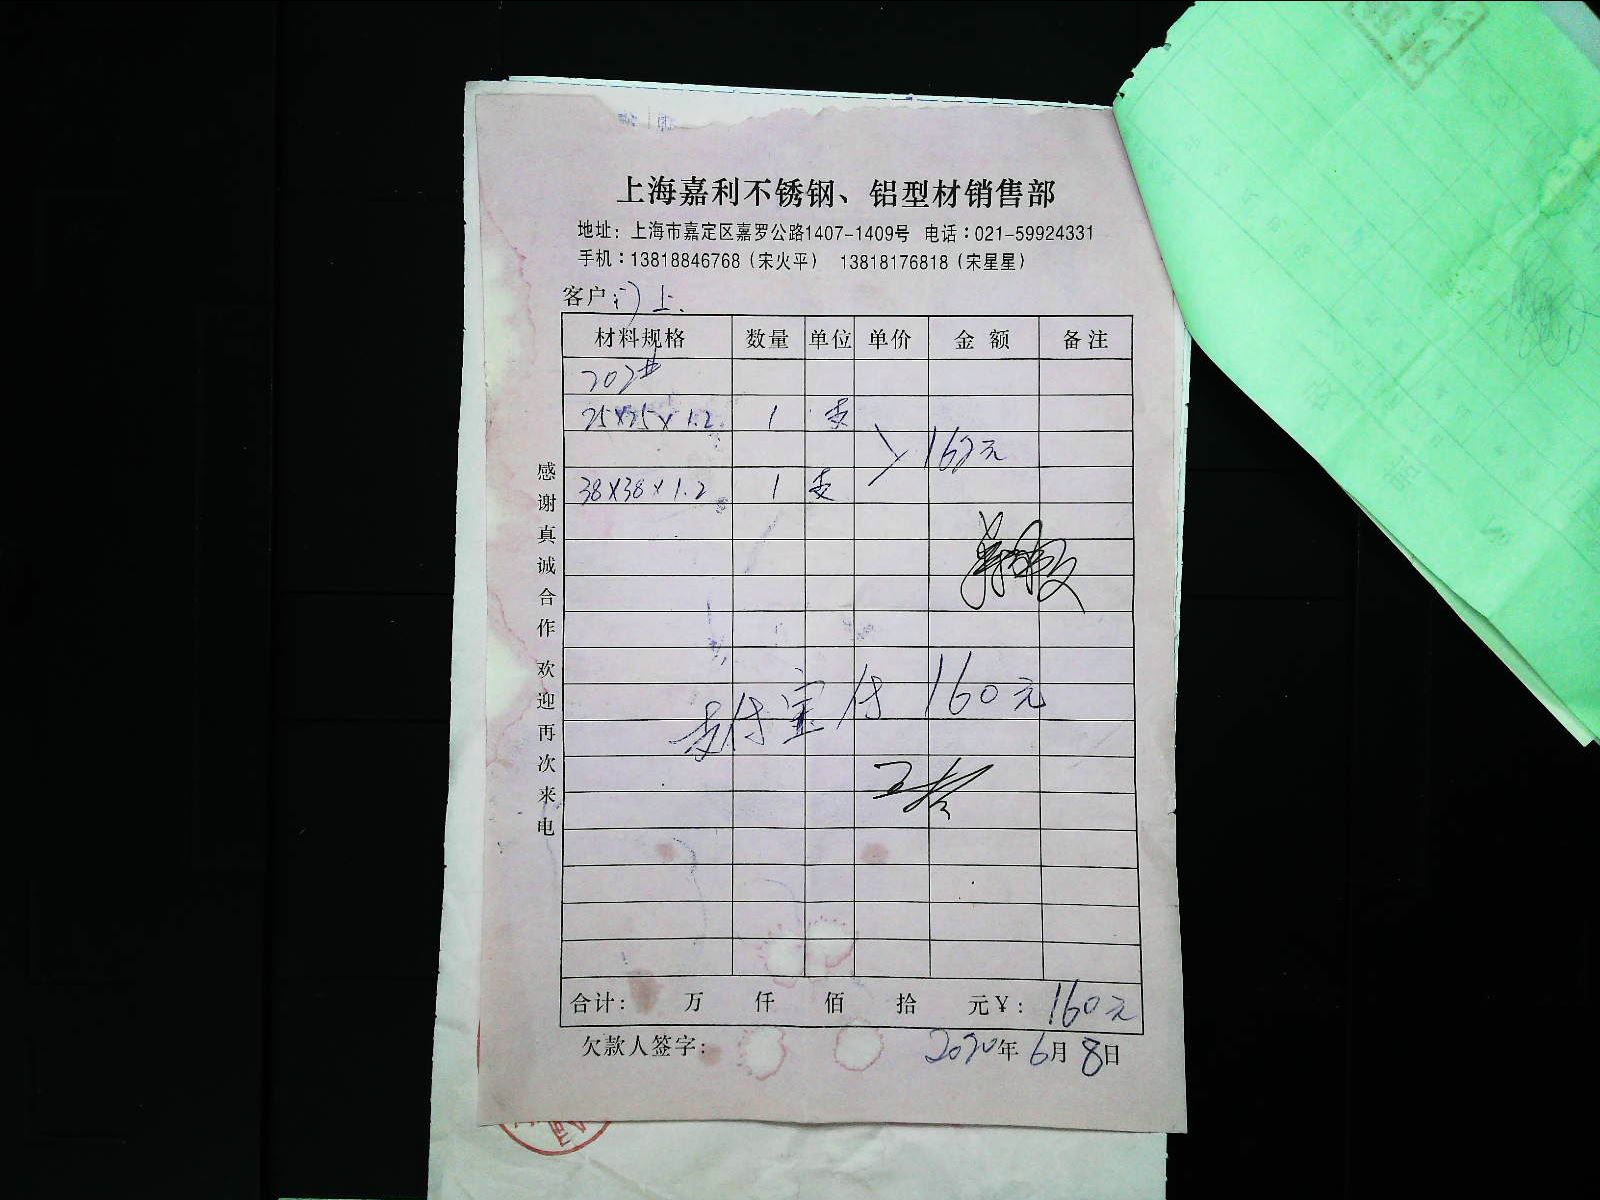 上海嘉利不锈钢、铝型材销售部
地址：上海市嘉定区嘉罗公路1407-1409号 电话：021-59924331
手机：13818846768（宋火平） 13818176818（宋星星）
客户：门上
材料规格 数量 单位 单价 金额 备注
202#
25×25×1.2 1 支
162元
38×38×1.2 1 支
支付宝付 160元
合计： 万 仟 佰 拾 元￥：160元
欠款人签字： 2020年6月8日
感谢真诚合作 欢迎再次来电